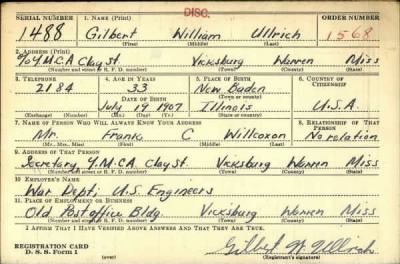 DISC.
SERIAL NUMBER 1. NAME (Print) ORDER NUMBER
1488 Gilbert William Ullrich 1568
(First) (Middle) (Last)
2. ADDRESS (Print)
℅ Y.M.C.A Clay St. Vicksburg Warren Miss
(Number and street or R. F. D. number) (Town) (County) (State)
3. TELEPHONE 4. AGE IN YEARS 5. PLACE OF BIRTH 6. COUNTRY OF CITIZENSHIP
2184 33 New Baden
DATE OF BIRTH (Town or county)
July 19 1907 Illinois U.S.A.
(Exchange) (Number) (Mo.) (Day) (Yr.) (State or country)
7. NAME OF PERSON WHO WILL ALWAYS KNOW YOUR ADDRESS 8. RELATIONSHIP OF THAT PERSON
Mr. Frank C Willcoxon No relation
(Mr., Mrs., Miss) (First) (Middle) (Last)
9. ADDRESS OF THAT PERSON
Secretary, Y.M.C.A. Clay St. Vicksburg Warren Miss
(Number and street or R. F. D. number) (Town) (County) (State)
10. EMPLOYER'S NAME
War Dept; U.S. Engineers
11. PLACE OF EMPLOYMENT OR BUSINESS
Old Postoffice Bldg. Vicksburg Warren Miss
(Number and street or R. F. D. number) (Town) (County) (State)
I AFFIRM THAT I HAVE VERIFIED ABOVE ANSWERS AND THAT THEY ARE TRUE.
REGISTRATION CARD Gilbert W. Ullrich
D. S. S. Form 1 (over) (Registrant's signature)